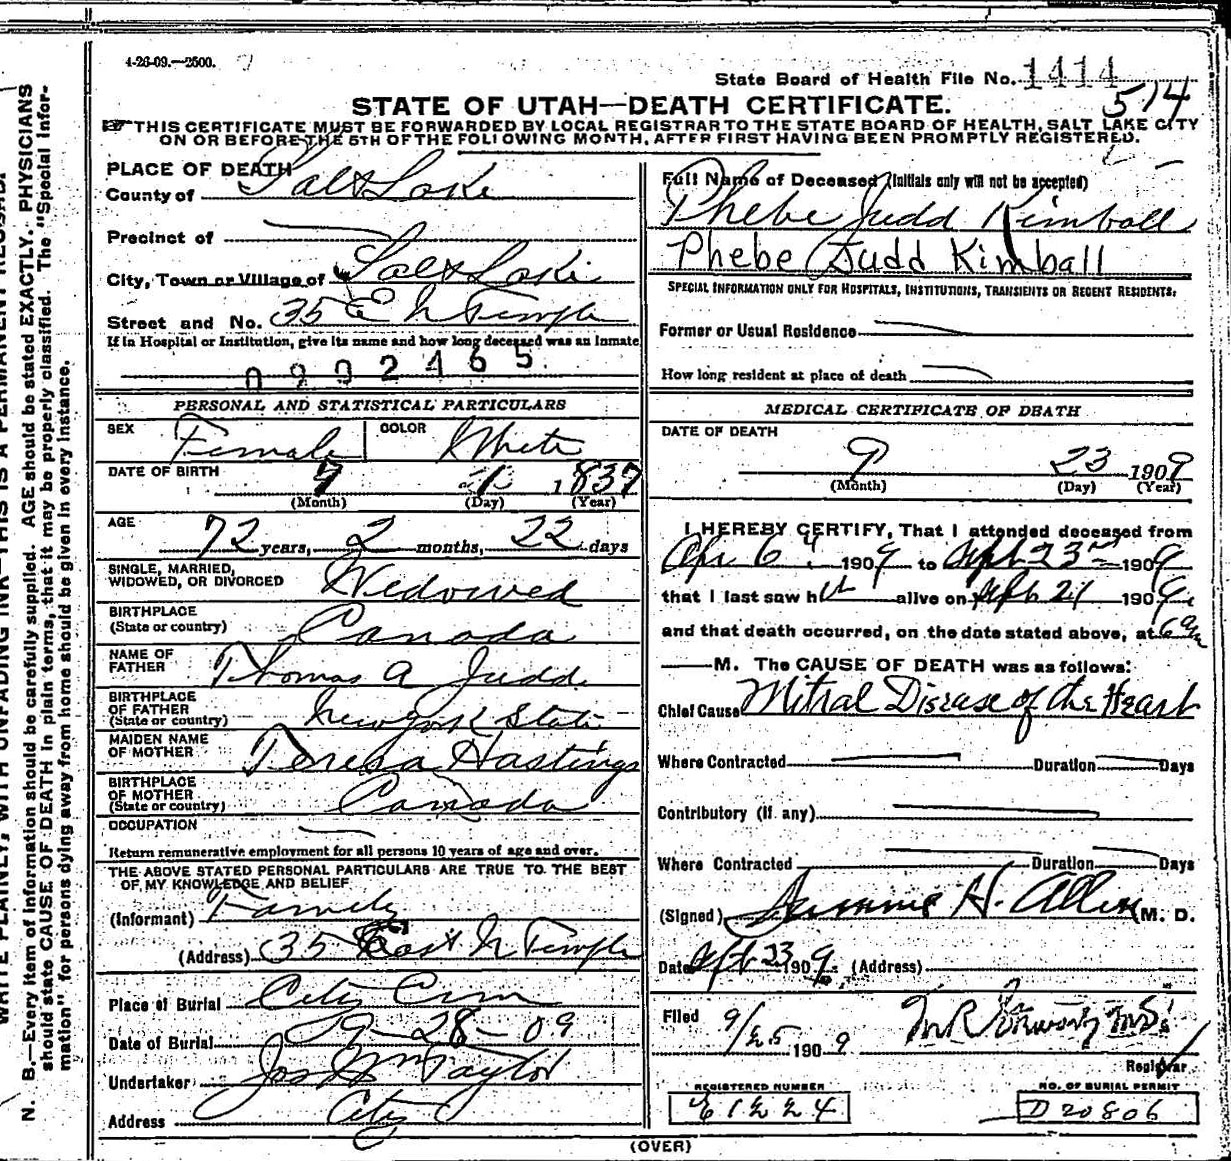 4-26-09.—2500.
State Board of Health File No. 1414
514
STATE OF UTAH—DEATH CERTIFICATE.
THIS CERTIFICATE MUST BE FORWARDED BY LOCAL REGISTRAR TO THE STATE BOARD OF HEALTH, SALT LAKE CITY
ON OR BEFORE THE 5TH OF THE FOLLOWING MONTH, AFTER FIRST HAVING BEEN PROMPTLY REGISTERED.
PLACE OF DEATH
County of Salt Lake
Precinct of
City, Town or Village of Salt Lake
Street and No. 35 E N Temple
If in Hospital or Institution, give its name and how long deceased was an inmate
0902465
Full Name of Deceased (Initials only will not be accepted)
Phebe Judd Kimball
Phebe Judd Kimball
SPECIAL INFORMATION ONLY FOR HOSPITALS, INSTITUTIONS, TRANSIENTS OR RECENT RESIDENTS.
Former or Usual Residence
How long resident at place of death
PERSONAL AND STATISTICAL PARTICULARS
SEX Female COLOR White
DATE OF BIRTH 7 1 1837
(Month) (Day) (Year)
AGE 72 years, 2 months, 22 days
SINGLE, MARRIED,
WIDOWED, OR DIVORCED Widowed
BIRTHPLACE
(State or country) Canada
NAME OF
FATHER Thomas A Judd
BIRTHPLACE
OF FATHER
(State or country) New York State
MAIDEN NAME
OF MOTHER Teresa Hastings
BIRTHPLACE
OF MOTHER
(State or country) Canada
OCCUPATION
Return remunerative employment for all persons 10 years of age and over.
THE ABOVE STATED PERSONAL PARTICULARS ARE TRUE TO THE BEST
OF MY KNOWLEDGE AND BELIEF
(Informant) Family
(Address) 35 East N Temple
Place of Burial City Cem
Date of Burial 9-28-09
Undertaker Jos Wm Taylor
Address City
MEDICAL CERTIFICATE OF DEATH
DATE OF DEATH
9 23 1909
(Month) (Day) (Year)
I HEREBY CERTIFY, That I attended deceased from
Apr 6 1909 to Sept 23rd 1909
that I last saw h alive on Sept 21 1909
and that death occurred, on the date stated above, at 6 am
M. The CAUSE OF DEATH was as follows:
Chief Cause Mitral Disease of the Heart
Where Contracted Duration Days
Contributory (if any)
Where Contracted Duration Days
(Signed) H. Allen M. D.
Date Sept 23 1909. (Address)
Filed 9/25 1909
Registrar
REGISTERED NUMBER
NO. OF BURIAL PERMIT
D20806
(OVER)
N. B.—Every item of information should be carefully supplied. AGE should be stated EXACTLY. PHYSICIANS
should state CAUSE OF DEATH in plain terms, that it may be properly classified. The "Special Infor-
mation" for persons dying away from home should be given in every instance.